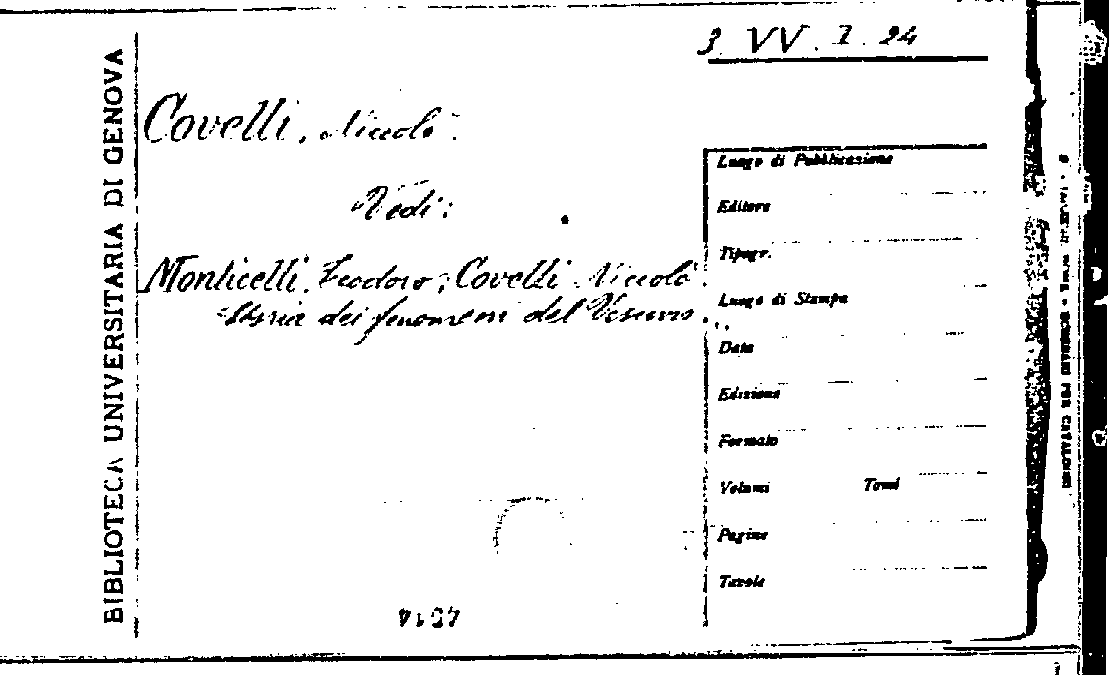 3 VV. I. 24
BIBLIOTECA UNIVERSITARIA DI GENOVA
Covelli, Niccolò.
Vedi:
Monticelli, Teodoro; Covelli Niccolò.
Storia dei fenomeni del Vesuvio...
Luogo di Pubblicazione
Editore
Tipogr.
Luogo di Stampa
Data
Edizione
Formato
Volumi Tomi
Pagine
Tavole